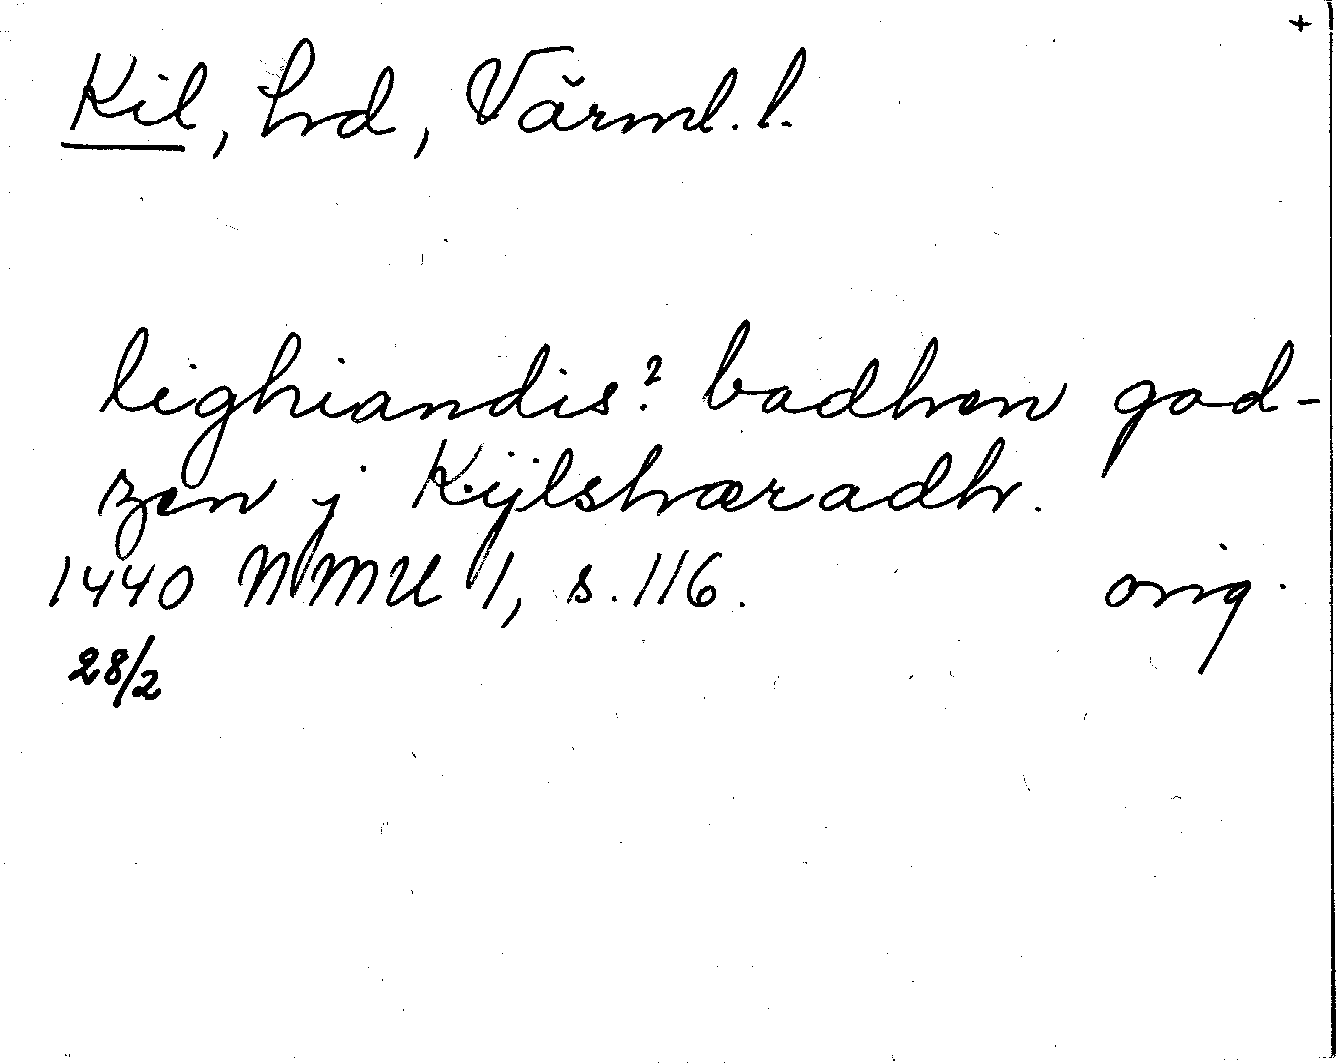 +
Kil, hd, Värml. l.
lighiandis? badhen god-
zen j Kijlshæradh.
1440 NMU 1, s. 116. orig.
28/2